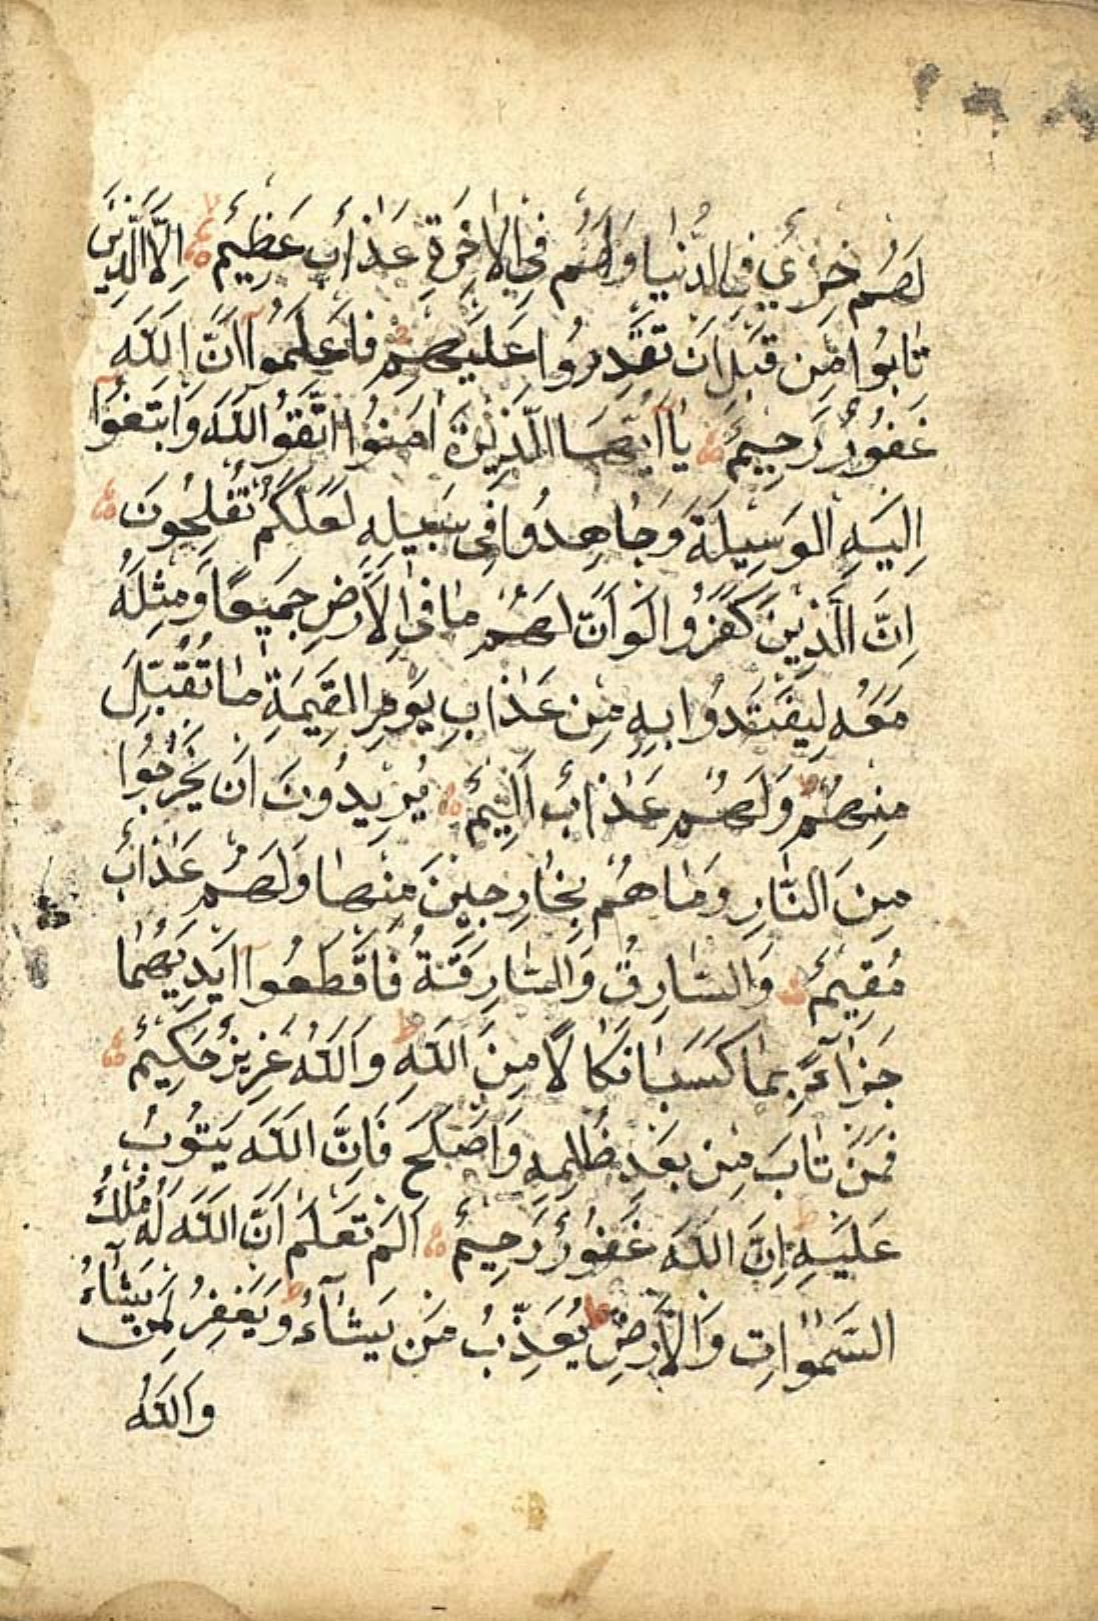 لَهُمْ خِزْيٌ فِي الدُّنْيَا وَلَهُمْ فِي الْاٰخِرَةِ عَذَابٌ عَظِيمٌ اِلَّا الَّذِينَ
تَابُوا مِنْ قَبْلِ اَنْ تَقْدِرُوا عَلَيْهِمْ فَاعْلَمُوا اَنَّ اللّٰهَ
غَفُورٌ رَحِيمٌ يَا اَيُّهَا الَّذِينَ اٰمَنُوا اتَّقُوا اللّٰهَ وَابْتَغُوا
اِلَيْهِ الْوَسِيلَةَ وَجَاهِدُوا فِي سَبِيلِهِ لَعَلَّكُمْ تُفْلِحُونَ
اِنَّ الَّذِينَ كَفَرُوا لَوْ اَنَّ لَهُمْ مَا فِي الْاَرْضِ جَمِيعًا وَمِثْلَهُ
مَعَهُ لِيَفْتَدُوا بِهِ مِنْ عَذَابِ يَوْمِ الْقِيٰمَةِ مَا تُقُبِّلَ
مِنْهُمْ وَلَهُمْ عَذَابٌ اَلِيمٌ يُرِيدُونَ اَنْ يَخْرُجُوا
مِنَ النَّارِ وَمَا هُمْ بِخَارِجِينَ مِنْهَا وَلَهُمْ عَذَابٌ
مُقِيمٌ وَالسَّارِقُ وَالسَّارِقَةُ فَاقْطَعُوا اَيْدِيَهُمَا
جَزَاءً بِمَا كَسَبَا نَكَالًا مِنَ اللّٰهِ وَاللّٰهُ عَزِيزٌ حَكِيمٌ
فَمَنْ تَابَ مِنْ بَعْدِ ظُلْمِهِ وَاَصْلَحَ فَاِنَّ اللّٰهَ يَتُوبُ
عَلَيْهِ اِنَّ اللّٰهَ غَفُورٌ رَحِيمٌ اَلَمْ تَعْلَمْ اَنَّ اللّٰهَ لَهُ مُلْكُ
السَّمٰوَاتِ وَالْاَرْضِ يُعَذِّبُ مَنْ يَشَاءُ وَيَغْفِرُ لِمَنْ يَشَاءُ
وَاللّٰهُ